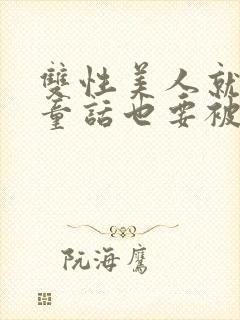 雙性美人就
童話也要被
阮海鷹